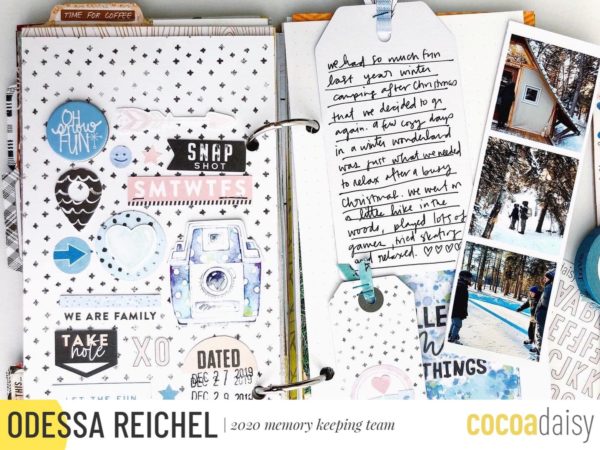 TIME FOR COFFEE
OH
snow
FUN
SNAP
SHOT
SMTWTFS
WE ARE FAMILY
TAKE
note
XO
DATED
DEC 27 2019
DEC 29 2019
LET THE FUN
we had so much fun
last year winter
camping after Christmas
that we decided to go
again. a few cozy days
in a winter wonderland
was just what we needed
to relax after a busy
Christmas. we went on
a little hike in the
woods, played lots of
games, tried skating
and relaxed. ♡♡♡♡
THINGS
ODESSA REICHEL | 2020 memory keeping team
cocoadaisy